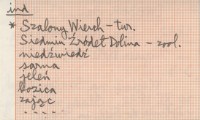 ind
* Szalony Wierch - tur.
Siedmiu Źródeł Dolina - zool.
niedźwiedź
sarna
jeleń
kozica
zając
. . . . .